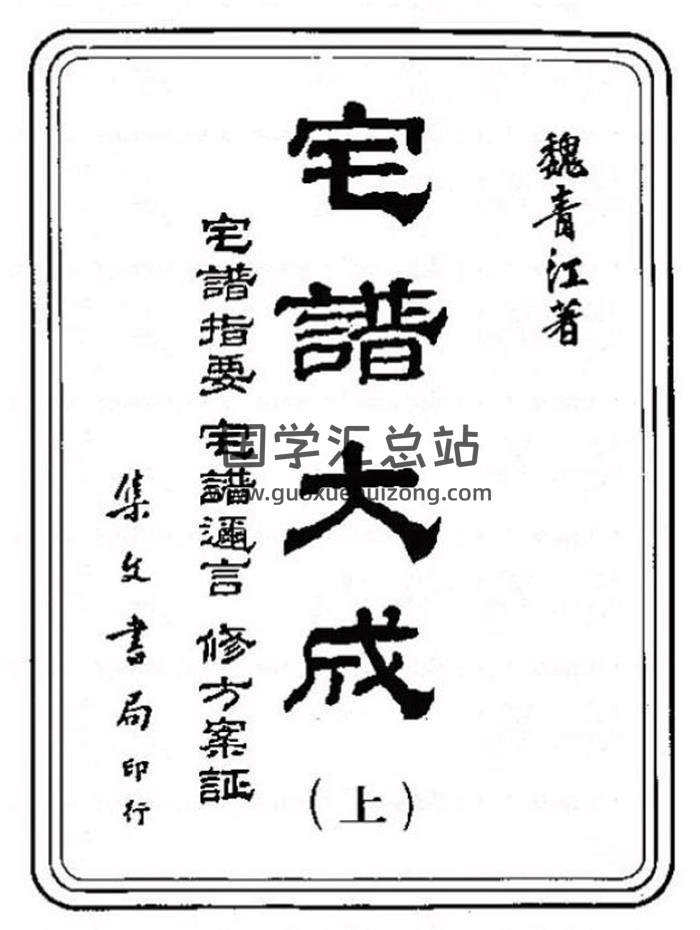 魏青江著
宅譜大成
（上）
宅譜指要 宅譜邇言 修方案証
集文書局印行
国学汇总站
www.guoxuehuizong.com